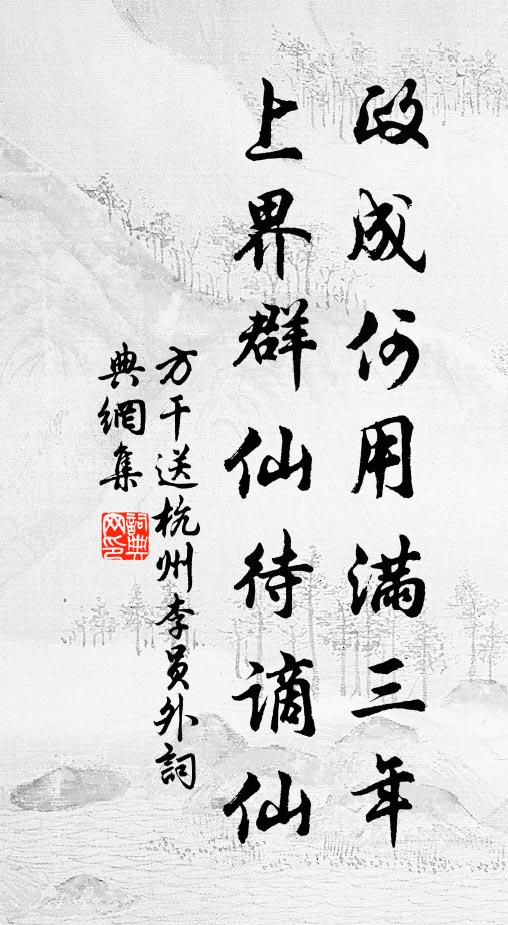 政成何用满三年
上界群仙待谪仙
方干送杭州李员外詞
典網集
詞典
网印